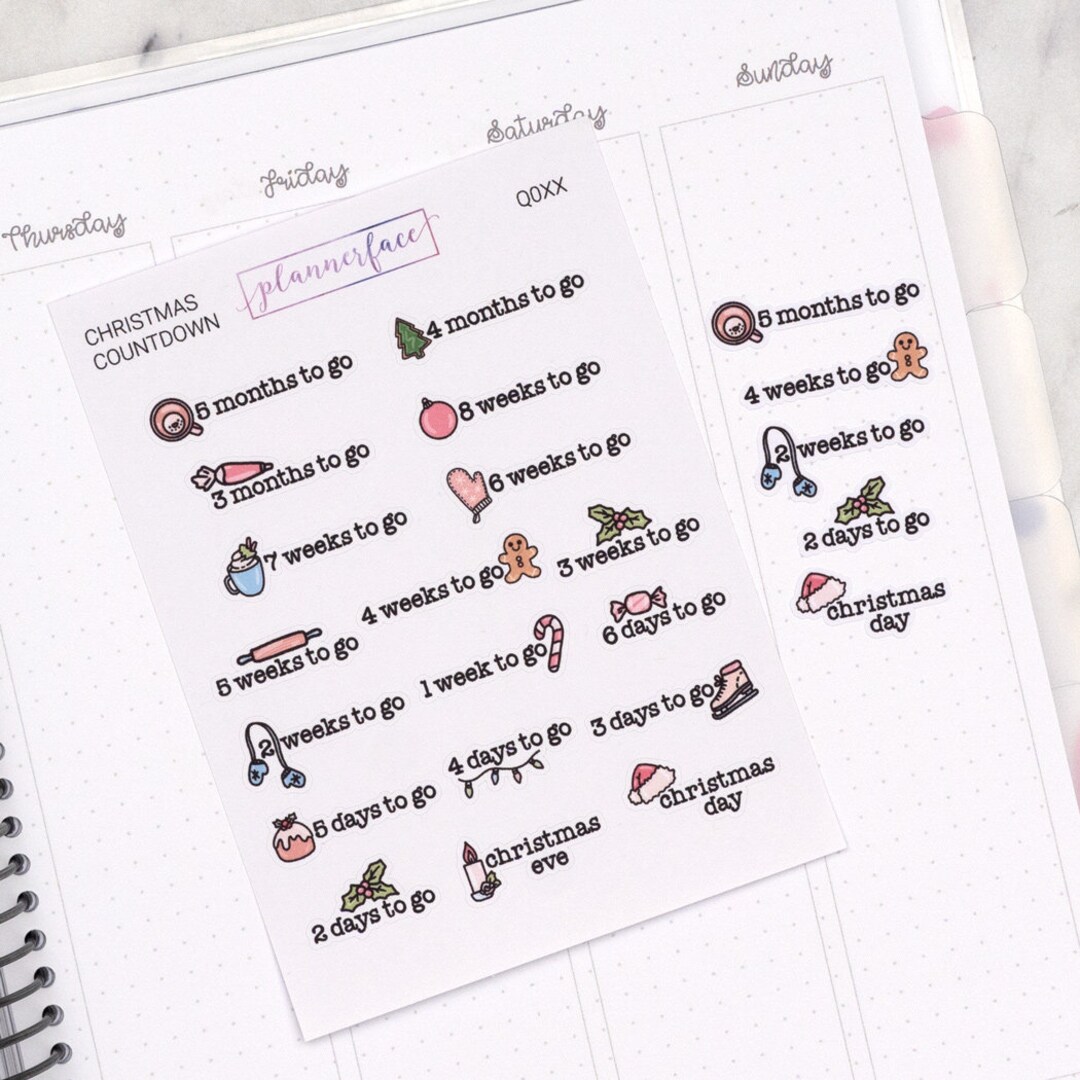 Thursday
Friday
Saturday
Sunday
CHRISTMAS
COUNTDOWN
plannerface
Q0XX
5 months to go
4 months to go
3 months to go
8 weeks to go
7 weeks to go
6 weeks to go
5 weeks to go
4 weeks to go
3 weeks to go
2 weeks to go
1 week to go
6 days to go
5 days to go
4 days to go
3 days to go
2 days to go
christmas
eve
christmas
day
5 months to go
4 weeks to go
2 weeks to go
2 days to go
christmas
day